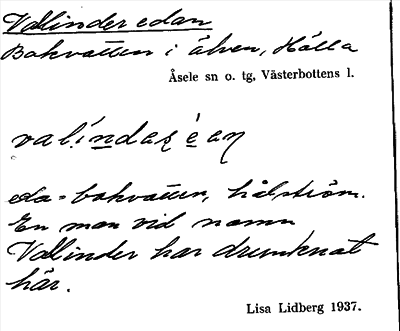 Vallinder edan
Bakvatten i älven, Hälla
Åsele sn o. tg, Västerbottens l.
valindaṣ ean
eda = bakvatten, hålström.
En man vid namn
Vallinder har drunknat
här.
Lisa Lidberg 1937.